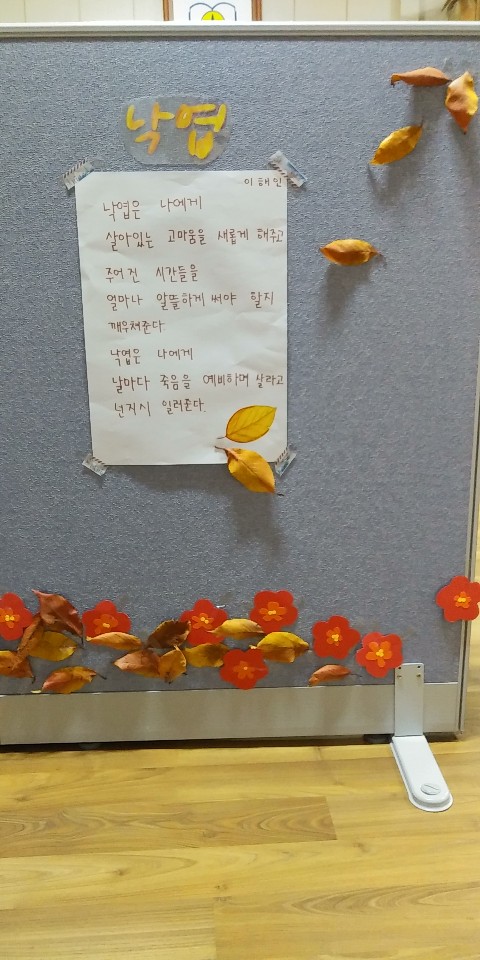 낙엽
이해인
낙엽은 나에게
살아있는 고마움을 새롭게 해주고
주어진 시간들을
얼마나 알뜰하게 써야 할지
깨우쳐준다
낙엽은 나에게
날마다 죽음을 예비하며 살라고
넌지시 일러준다.